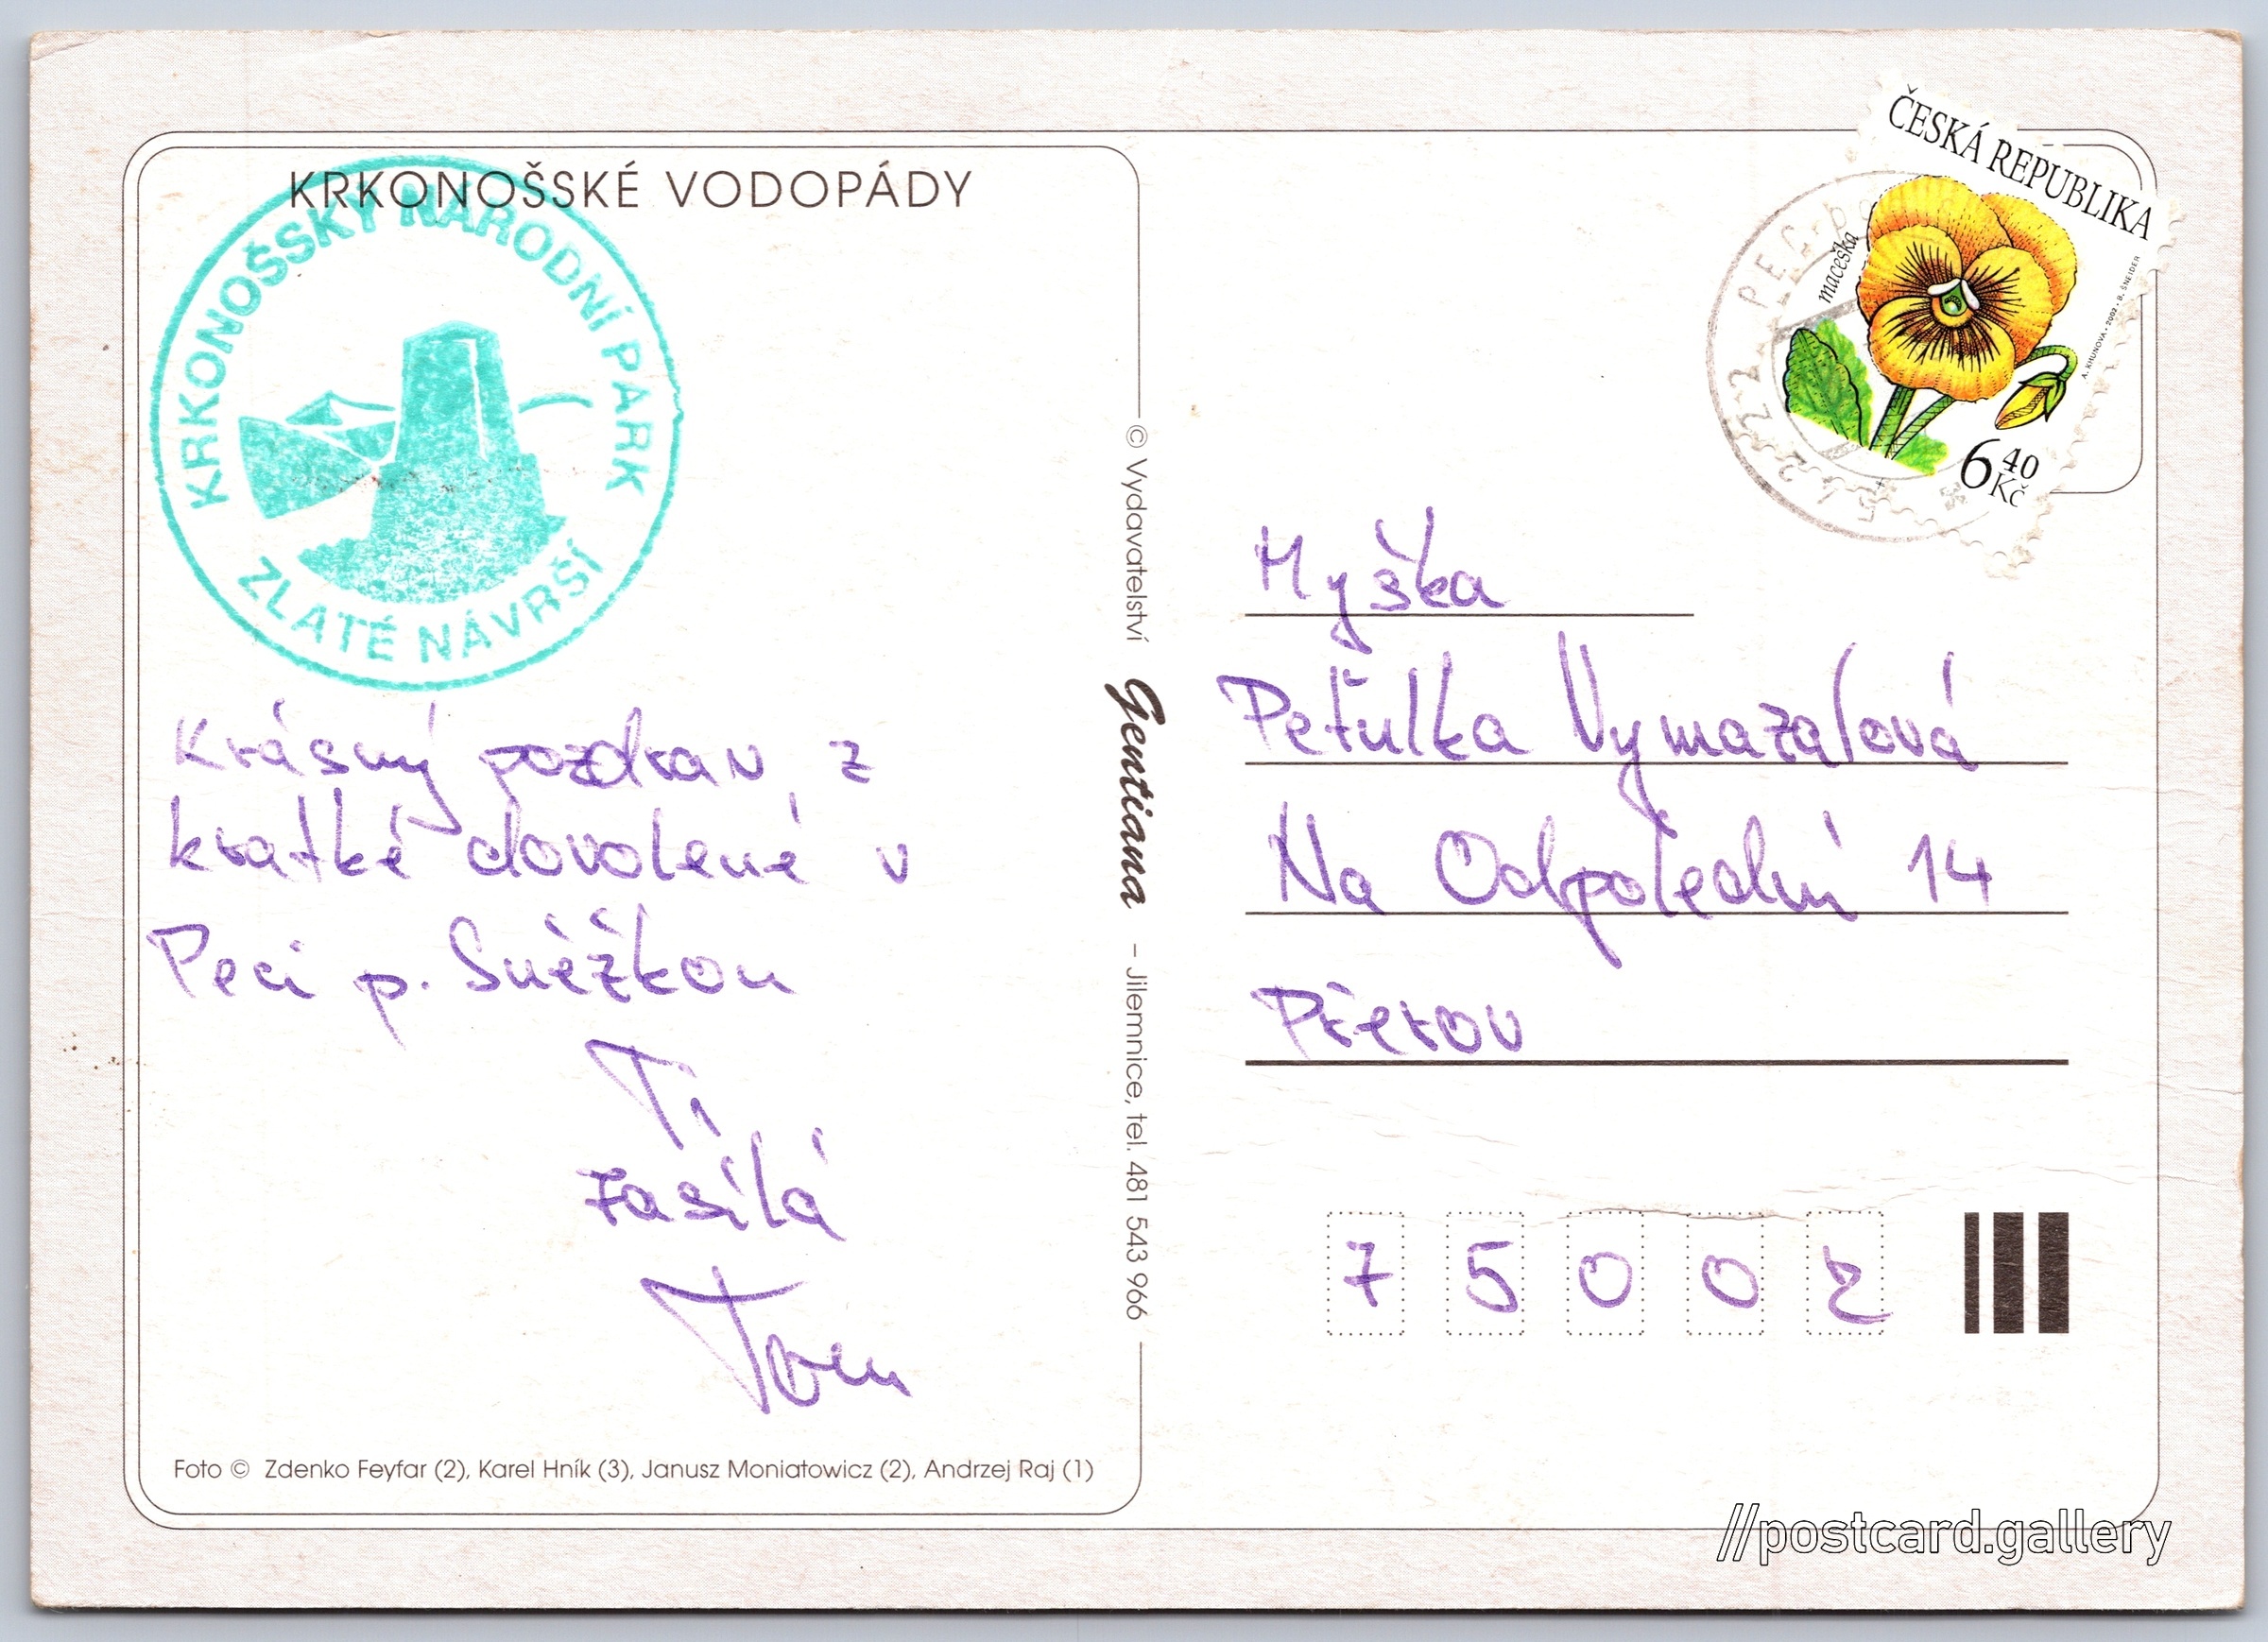 KRKONOŠSKÉ VODOPÁDY
KRKONOŠSKÝ NÁRODNÍ PARK
ZLATÉ NÁVRŠÍ
Krásný pozdrav z
krátké dovolené v
Peci p. Sněžkou
Ti
zasílá
Tom
Foto © Zdenko Feyfar (2), Karel Hník (3), Janusz Moniatowicz (2), Andrzej Raj (1)
© Vydavatelství Gentiana – Jilemnice, tel. 481 543 966
ČESKÁ REPUBLIKA
maceška
A. KHUNOVÁ • 2002 • B. ŠNEIDER
6 40
Kč
542 22 PEC POD
Myška
Peťulka Vymazalová
Na Odpoledni 14
Přerov
7 5 0 0 2
//postcard.gallery